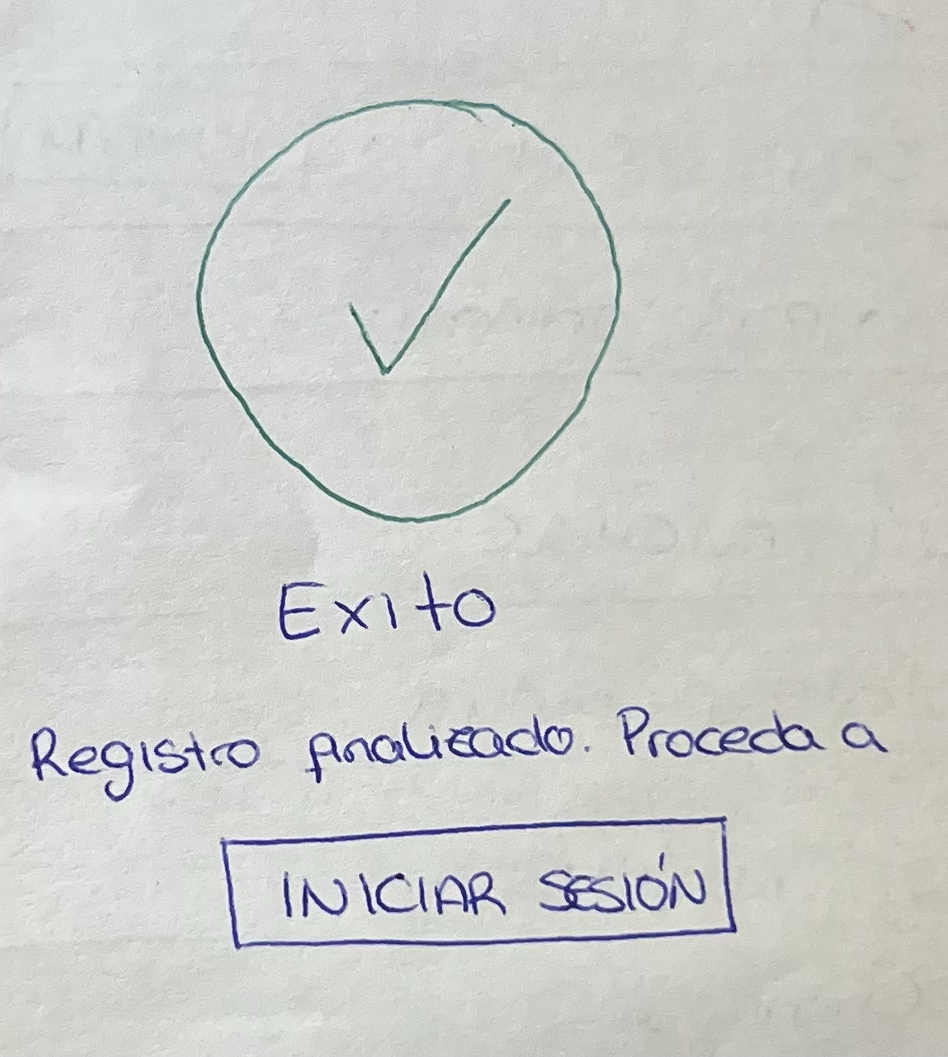 Exito
Registro finalizado. Proceda a
INICIAR SESIÓN